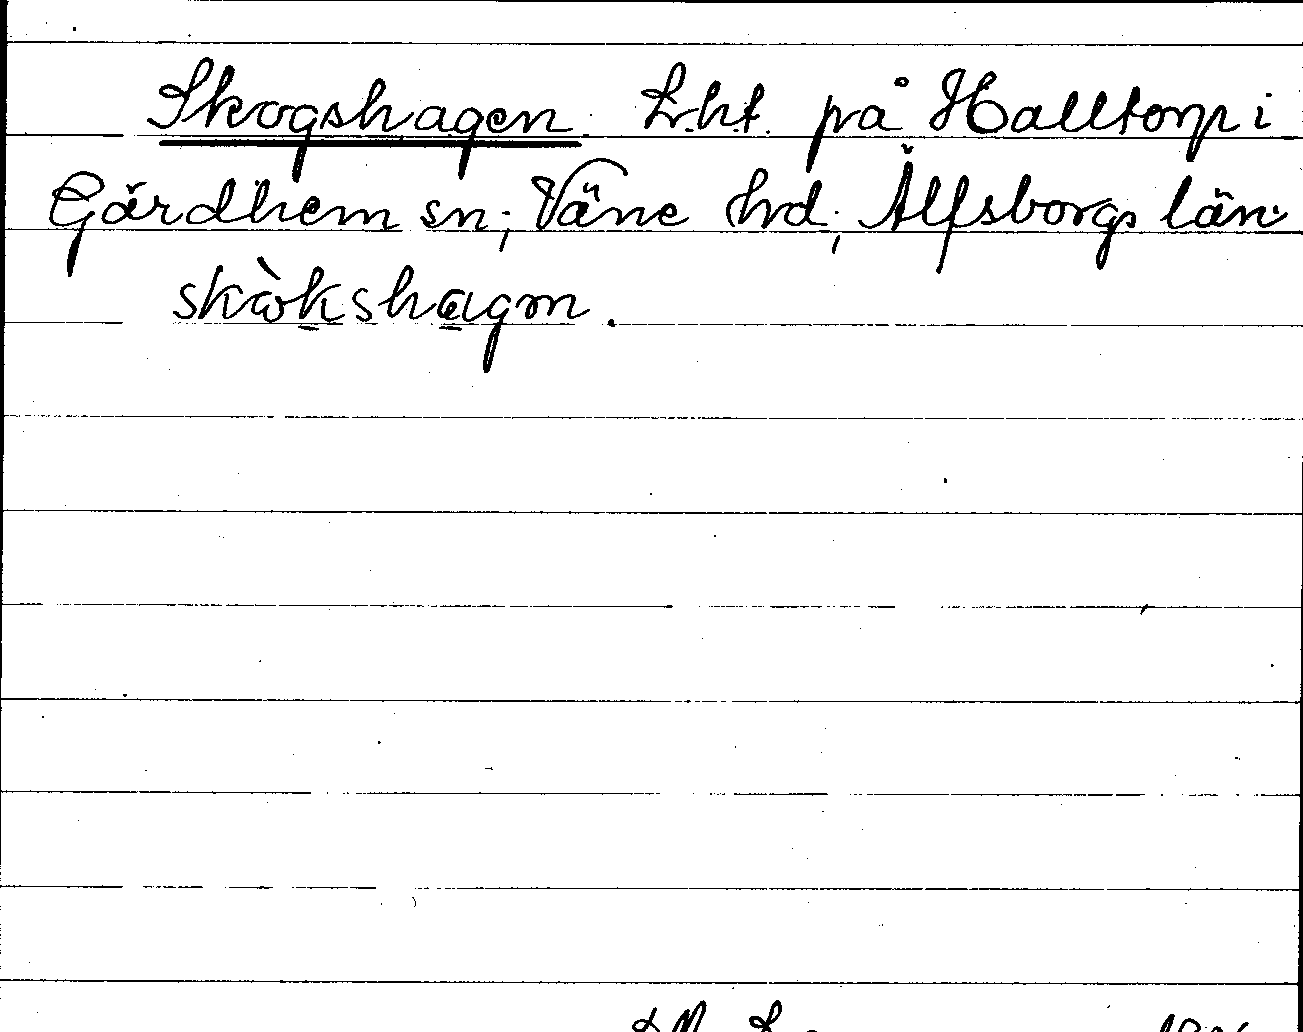 Skogshagen. L.h.t. på Halltorp i
Gärdhem sn; Väne hd; Älfsborgs län.
skòkshagm.